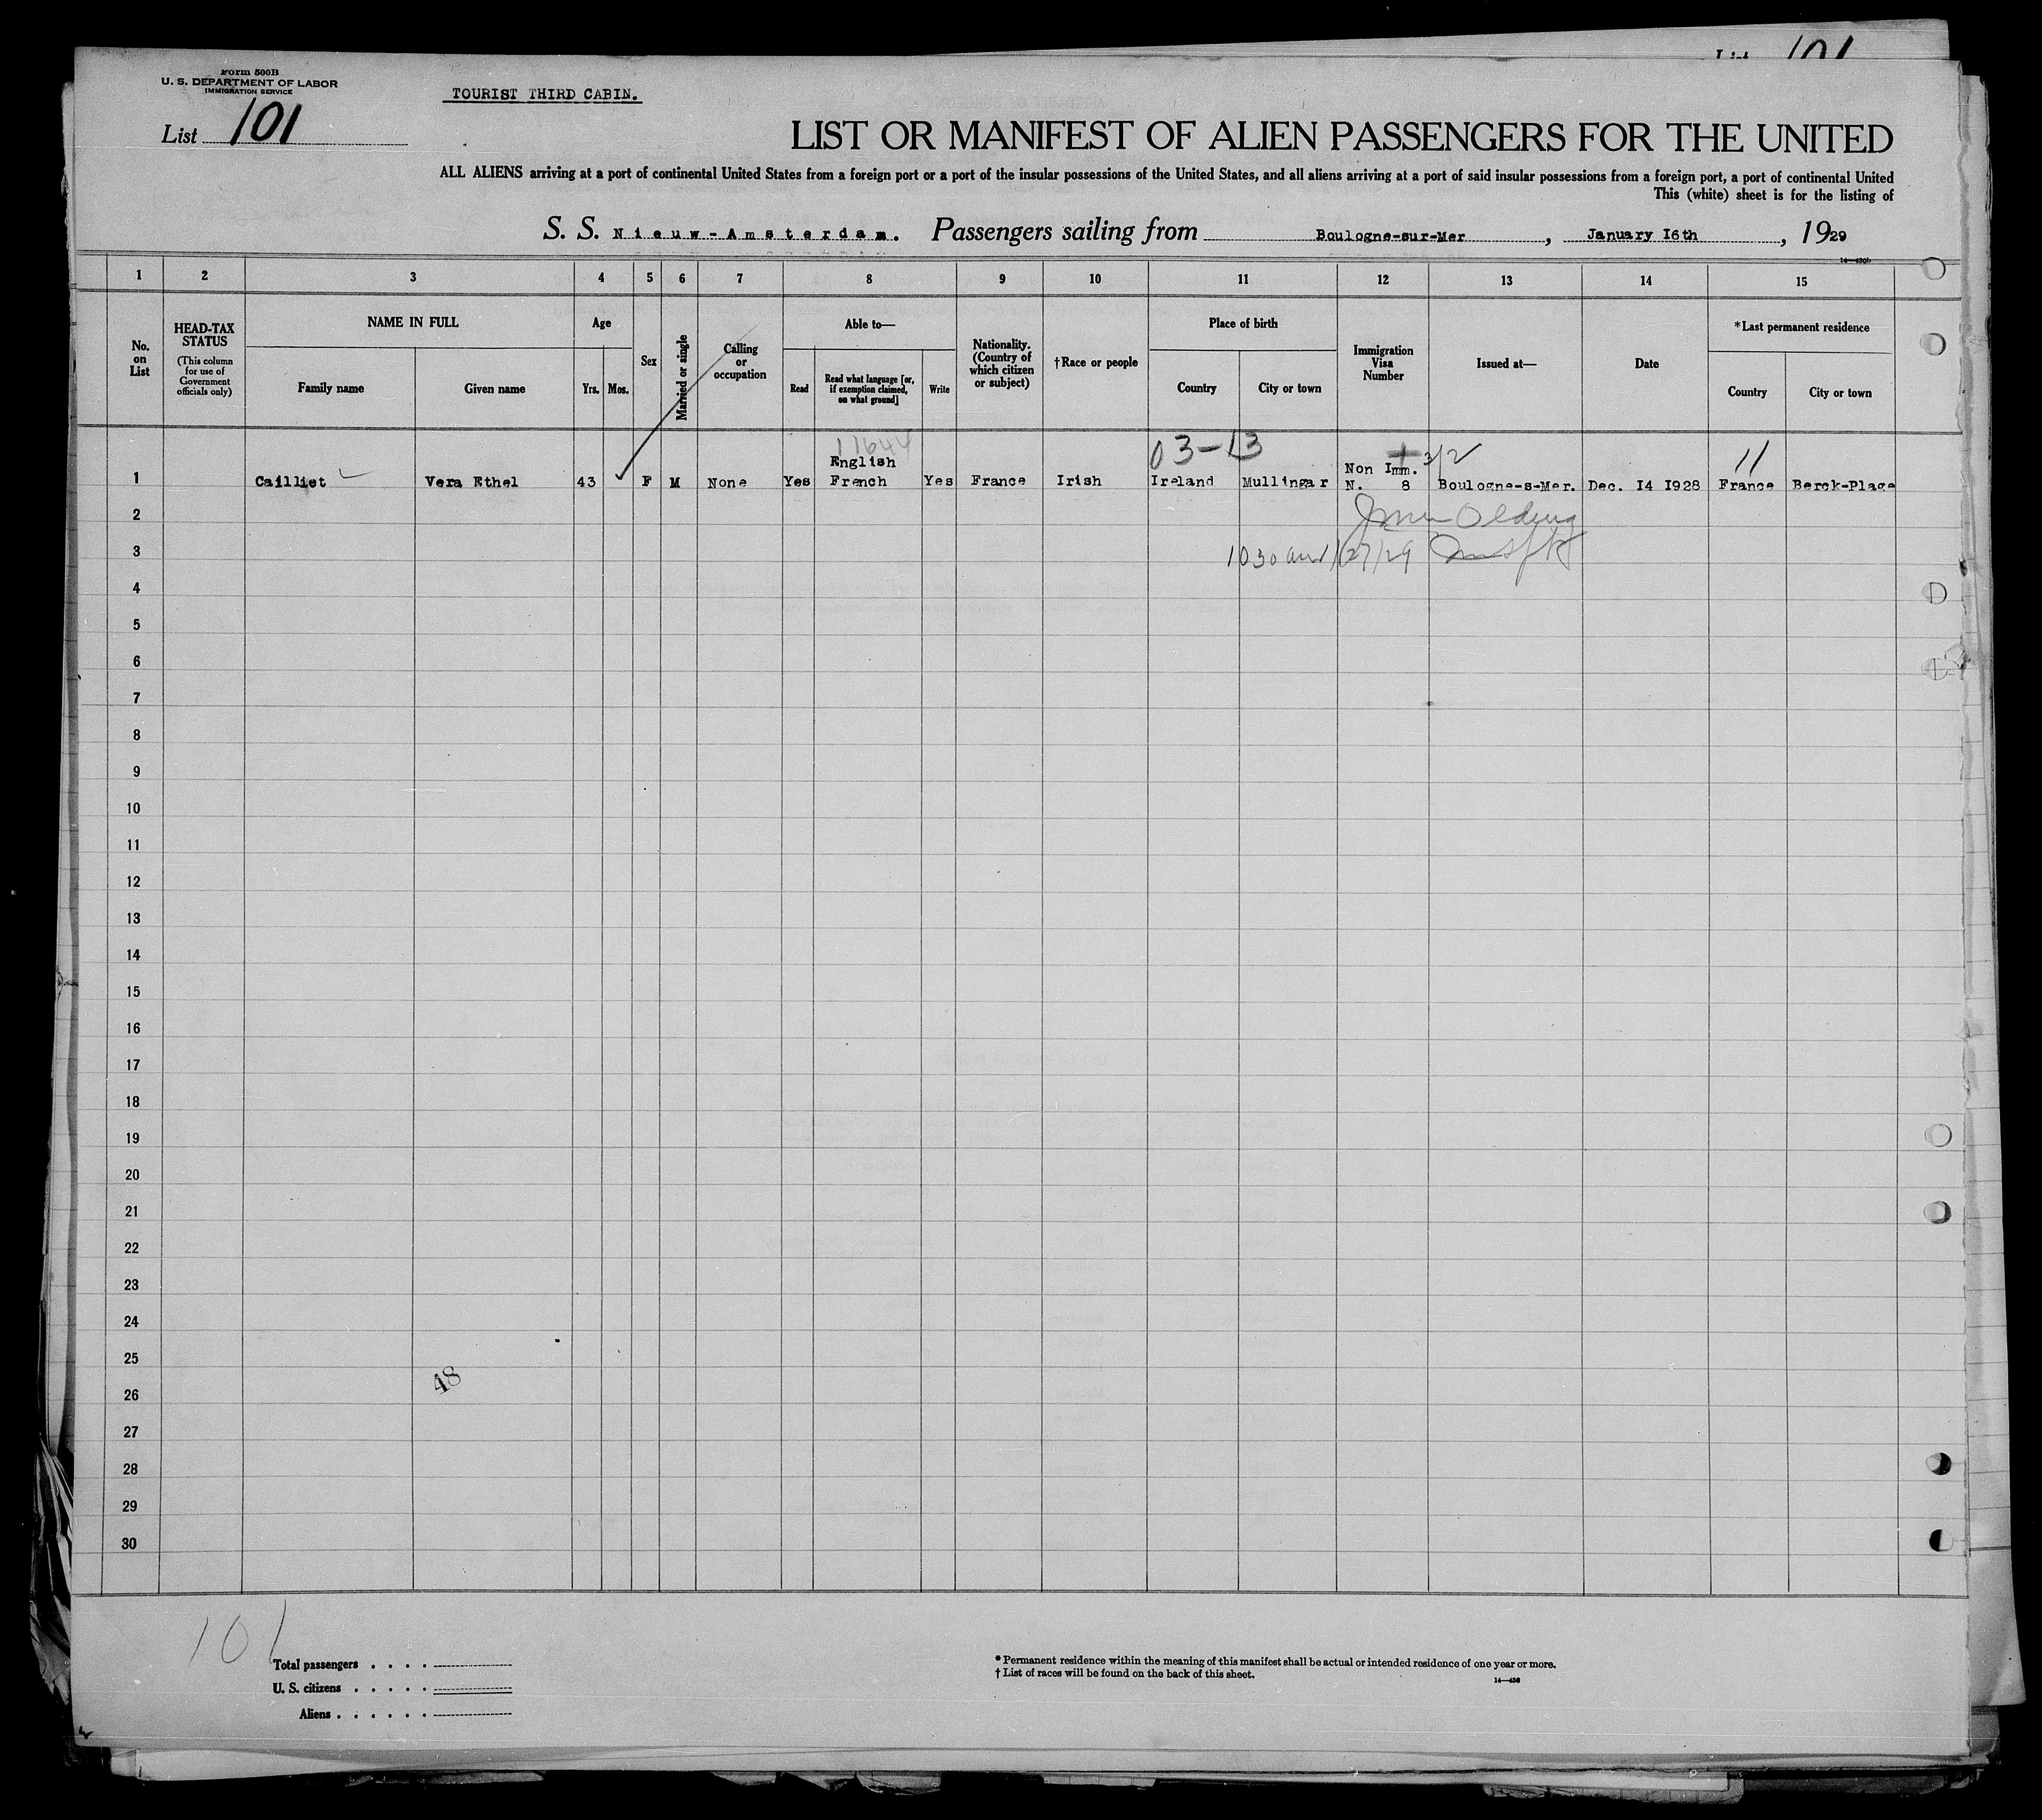 List 101
Form 500B
U. S. DEPARTMENT OF LABOR
IMMIGRATION SERVICE
TOURIST THIRD CABIN.
List 101
LIST OR MANIFEST OF ALIEN PASSENGERS FOR THE UNITED
ALL ALIENS arriving at a port of continental United States from a foreign port or a port of the insular possessions of the United States, and all aliens arriving at a port of said insular possessions from a foreign port, a port of continental United
This (white) sheet is for the listing of
S. S. Nieuw-Amsterdam. Passengers sailing from Boulogne-sur-Mer, January I6th, 1929
1 2 3 4 5 6 7 8 9 10 11 12 13 14 15
No. on List
HEAD-TAX STATUS
(This column for use of Government officials only)
NAME IN FULL
Family name
Given name
Age
Yrs.
Mos.
Sex
Married or single
Calling or occupation
Able to—
Read
Read what language [or, if exemption claimed, on what ground]
Write
Nationality. (Country of which citizen or subject)
†Race or people
Place of birth
Country
City or town
Immigration Visa Number
Issued at—
Date
*Last permanent residence
Country
City or town
11644
03-13
3/2
11
English
Non Imm.
1 Cailliet Vera Ethel 43 F M None Yes French Yes France Irish Ireland Mullingar N. 8 Boulogne-s-Mer. Dec. I4 I928 France Berck-Plage
2
3 1030 am 1/27/29
4
5
6
7
8
9
10
11
12
13
14
15
16
17
18
19
20
21
22
23
24
25
48
26
27
28
29
30
101
Total passengers . . . .
U. S. citizens . . . . .
Aliens . . . . . .
* Permanent residence within the meaning of this manifest shall be actual or intended residence of one year or more.
† List of races will be found on the back of this sheet.
14—430